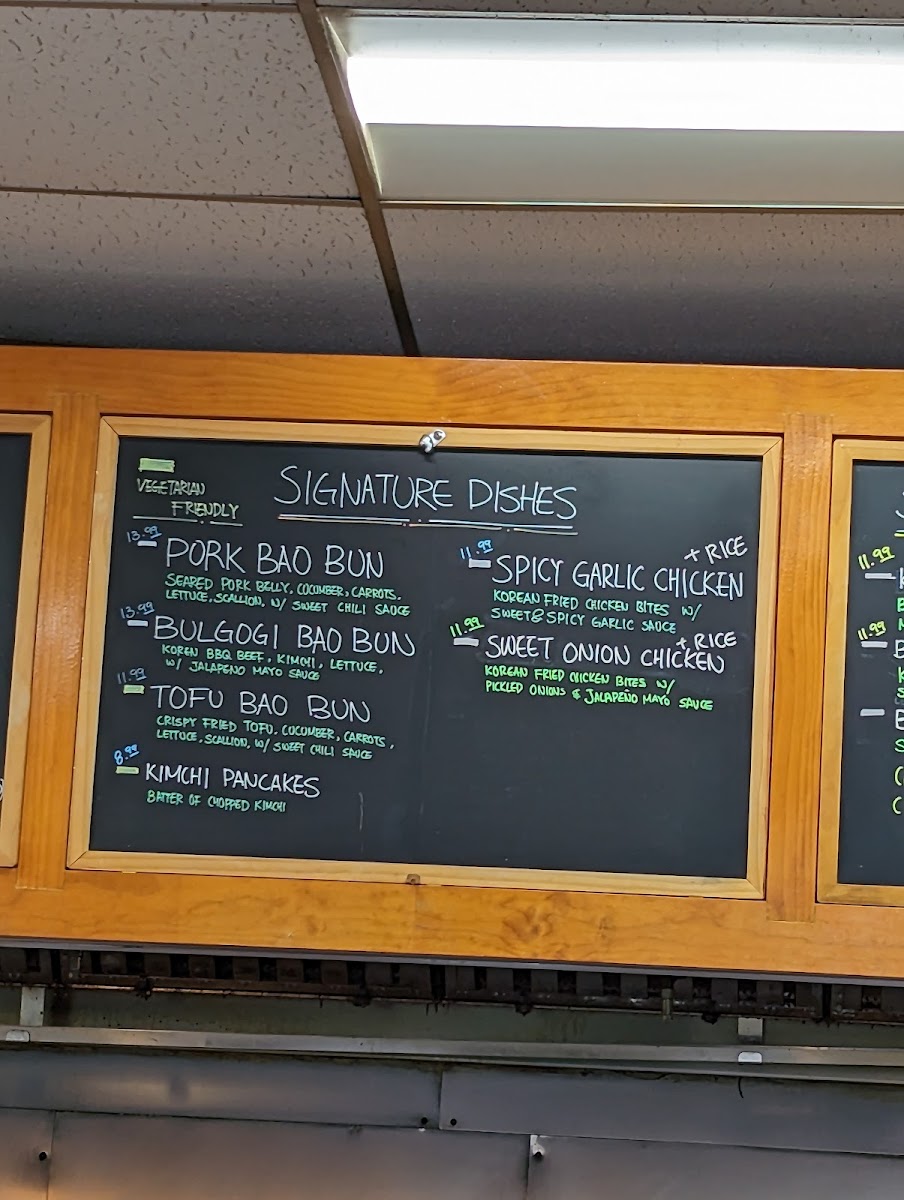 VEGETARIAN
FRIENDLY
SIGNATURE DISHES
13.99
PORK BAO BUN
SEARED PORK BELLY, COCUMBER, CARROTS,
LETTUCE, SCALLION, W/ SWEET CHILI SAUCE
13.99
BULGOGI BAO BUN
KOREN BBQ BEEF, KIMCHI, LETTUCE,
W/ JALAPENO MAYO SAUCE
11.99
TOFU BAO BUN
CRISPY FRIED TOFU, COCUMBER, CARROTS,
LETTUCE, SCALLION, W/ SWEET CHILI SAUCE
8.99
KIMCHI PANCAKES
BATTER OF CHOPPED KIMCHI
11.99
+ RICE
SPICY GARLIC CHICKEN
KOREAN FRIED CHICKEN BITES W/
SWEET & SPICY GARLIC SAUCE
11.99
+ RICE
SWEET ONION CHICKEN
KOREAN FRIED CHICKEN BITES W/
PICKLED ONIONS & JALAPEÑO MAYO SAUCE
11.99
11.99